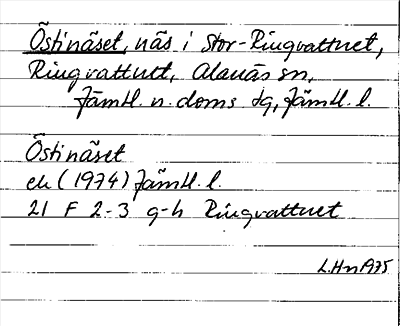 Östinäset, näs i Stor-Ringvattnet,
Ringvattnet, Alanäs sn,
Jämtl. n. doms tg, Jämtl. l.
Östinäset
ek (1974) Jämtl. l.
21 F 2-3 g-h Ringvattnet
L.Hn 1975